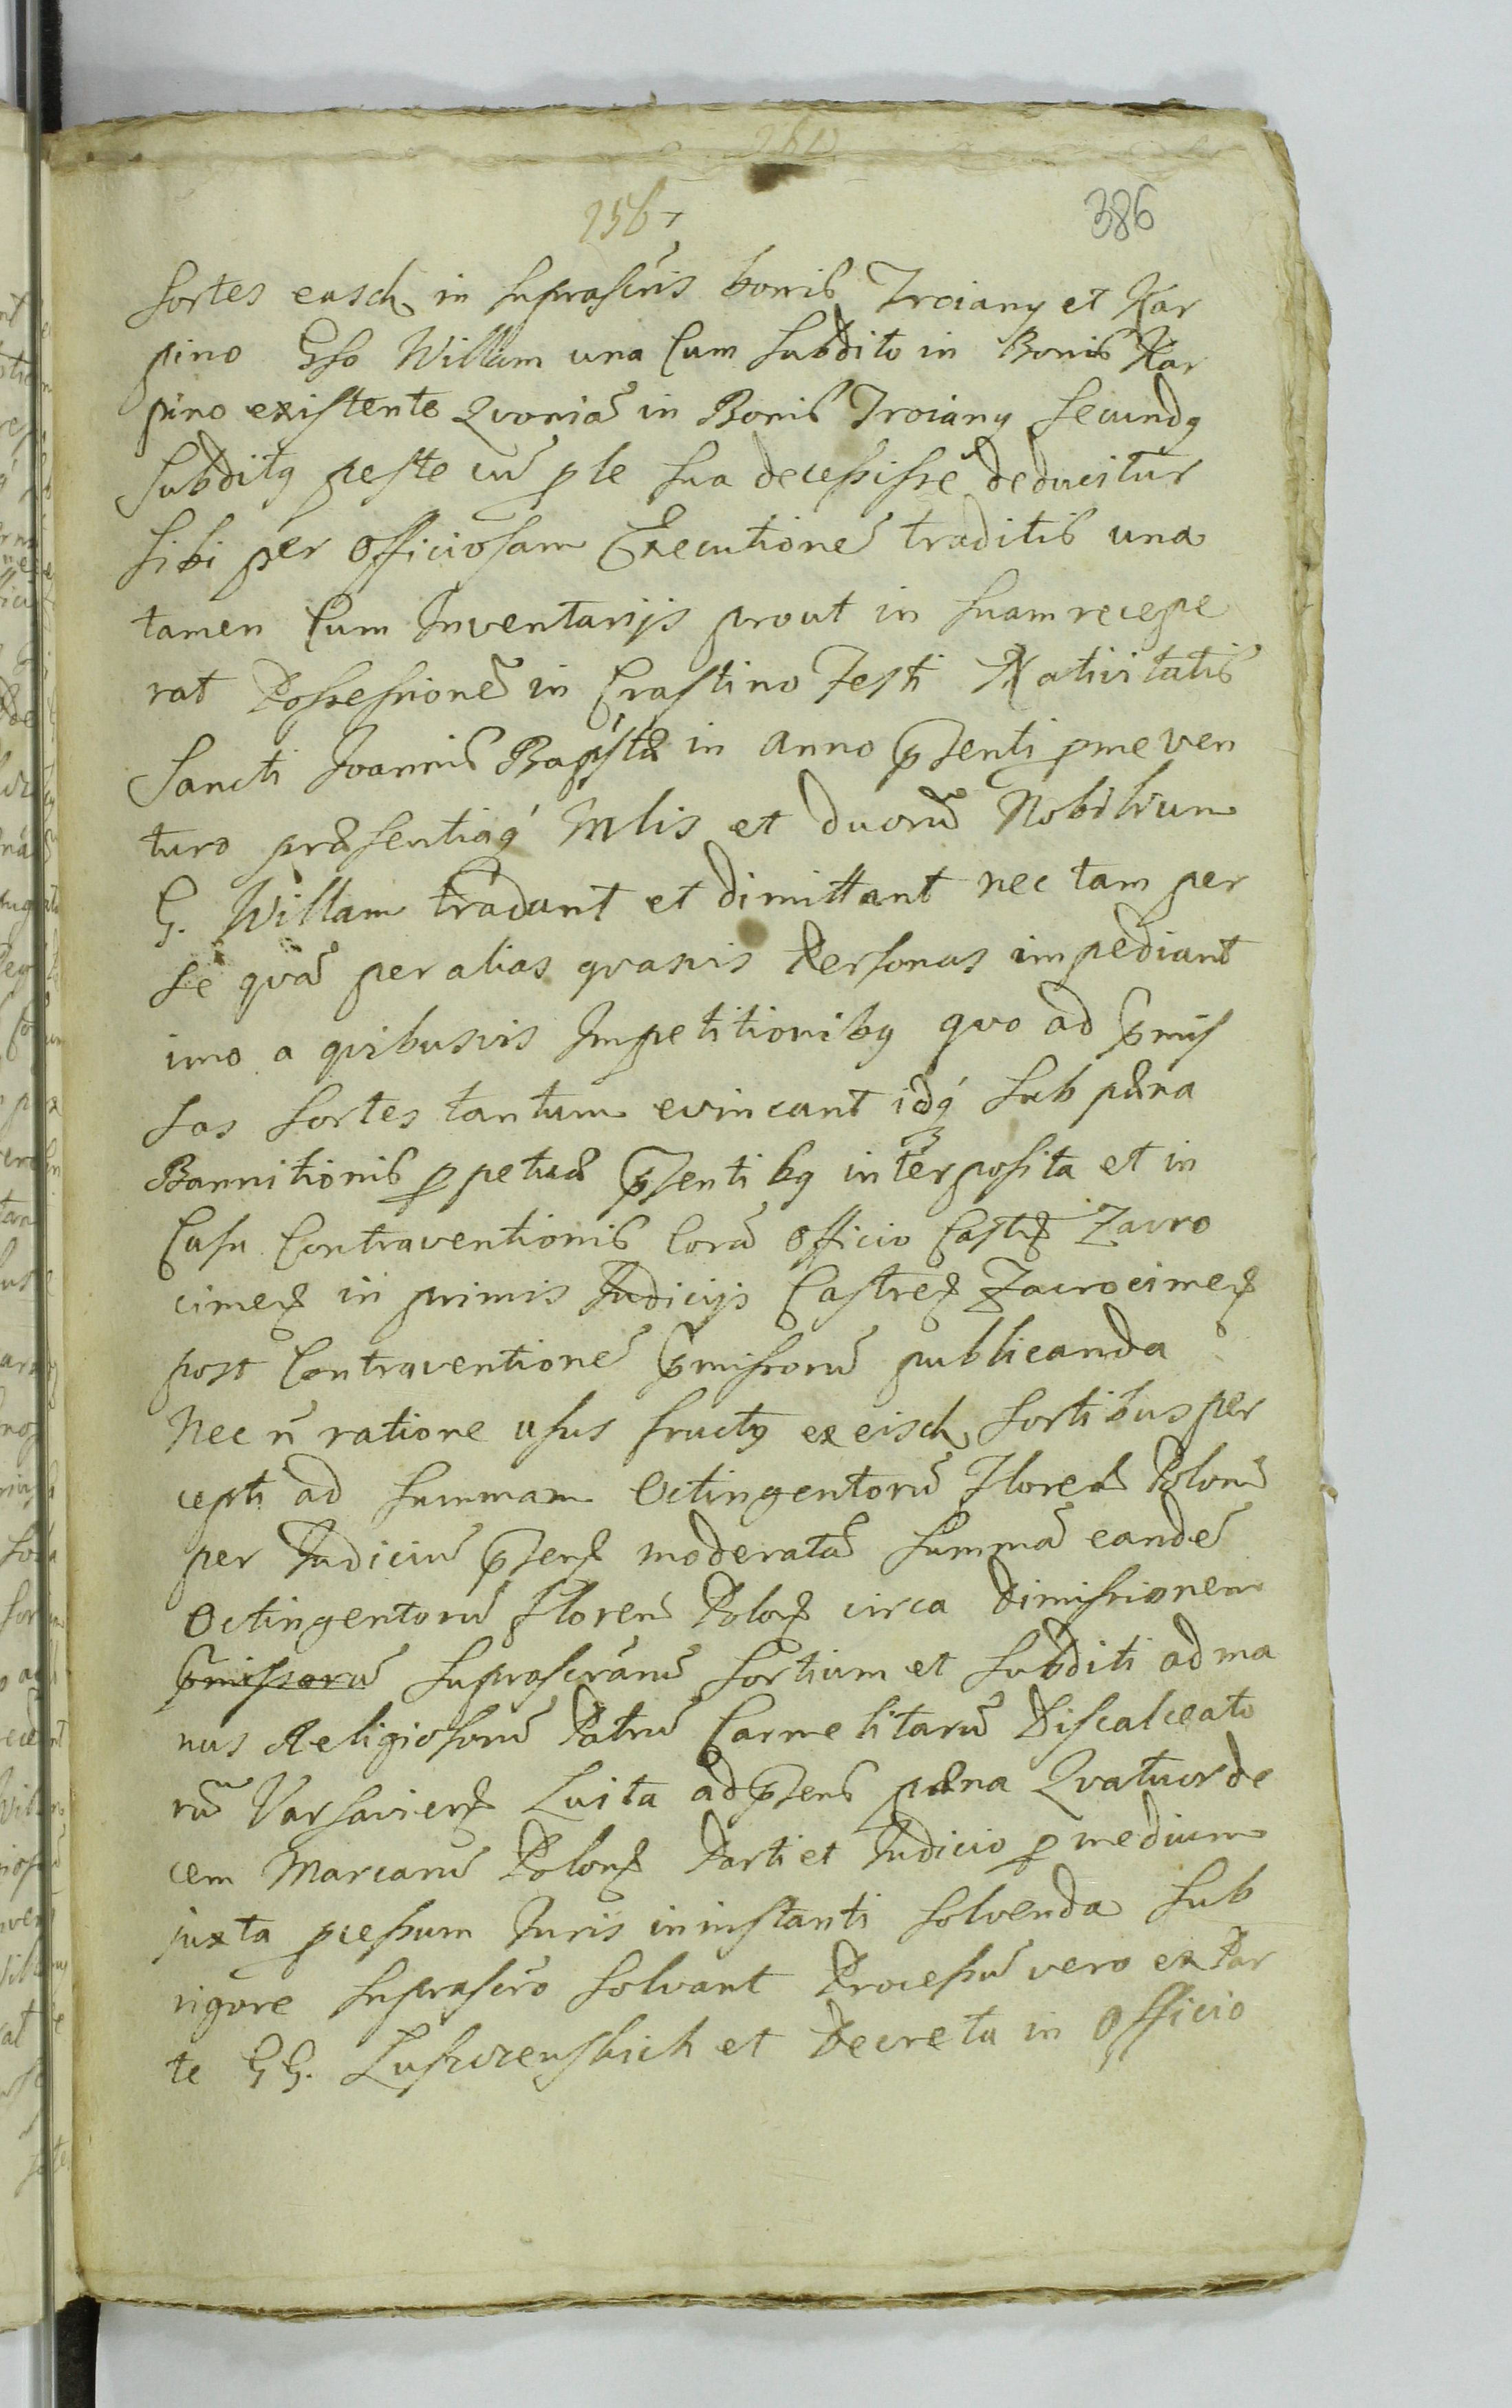 386
sortes easd. in suprascris bonis Troiany et Kar
pino Gso Willam una Cum subdito in Bonis Kar
pino existente Qvoniã in Bonis Troiany secundq
subditq peste cũ ple sua decessisse deducitur
sibi per Officiosam Executionẽ traditis una
tamen Cum Inventarijs prout in suam recepe
rat Possessionẽ in Crastino Festi Nativitatis
Sancti Joannis Baptistæ in anno p̃senti pme ven
turo præsentiaq́ Mlis et duorũ Nobilium
G. Willam tradant et dimittant nec tam per
se qvã per alias qvasvis Personas impediant
imo a qvibusvis Impetitionibq qvo ad p̃mis
sas sortes tantum evincant idq́ sub pæna
Bannitionis ppetuæ p̃sentibq interposita et in
Casu Contraventionis Corã Officio Castrs Zacro
cimens in primis Judicijs Castrens Zacrocimens
post Contraventionẽ p̃missorũ publicanda
Nec ñ ratione usus fructq ex eisd. sortibus per
cepti ad summam Octingentorũ Floren Polon̄
per Judiciũ p̃sens moderatã summã eandẽ
Octingentorũ Floren̄ Polons circa dimissionem
p̃missarũ suprascrarũ sortium et subditi ad ma
nus Religiosorũ Patrũ Carmelitarũ Discalceato
rũ Varsaviens Luita ad p̃sens pæna Qvatuorde
cem Marcarũ Polons Parti et Judicio p medium
juxta pcessum Juris in instanti solvenda sub
rigore suprascro solvant Processũ vero ex Par
te GG. et Decreta in Officio